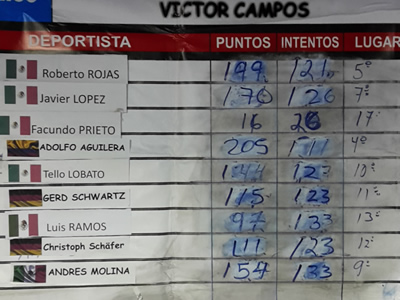 VICTOR CAMPOS
DEPORTISTA PUNTOS INTENTOS LUGAR
Roberto ROJAS 199 121 5º
Javier LOPEZ 176 126 7º
Facundo PRIETO 16 26 17º
ADOLFO AGUILERA 205 4º
Tello LOBATO 123 10º
GERD SCHWARTZ 115 123 11º
Luis RAMOS 97 133 13º
Christoph Schäfer 111 123 12º
ANDRES MOLINA 154 133 9º